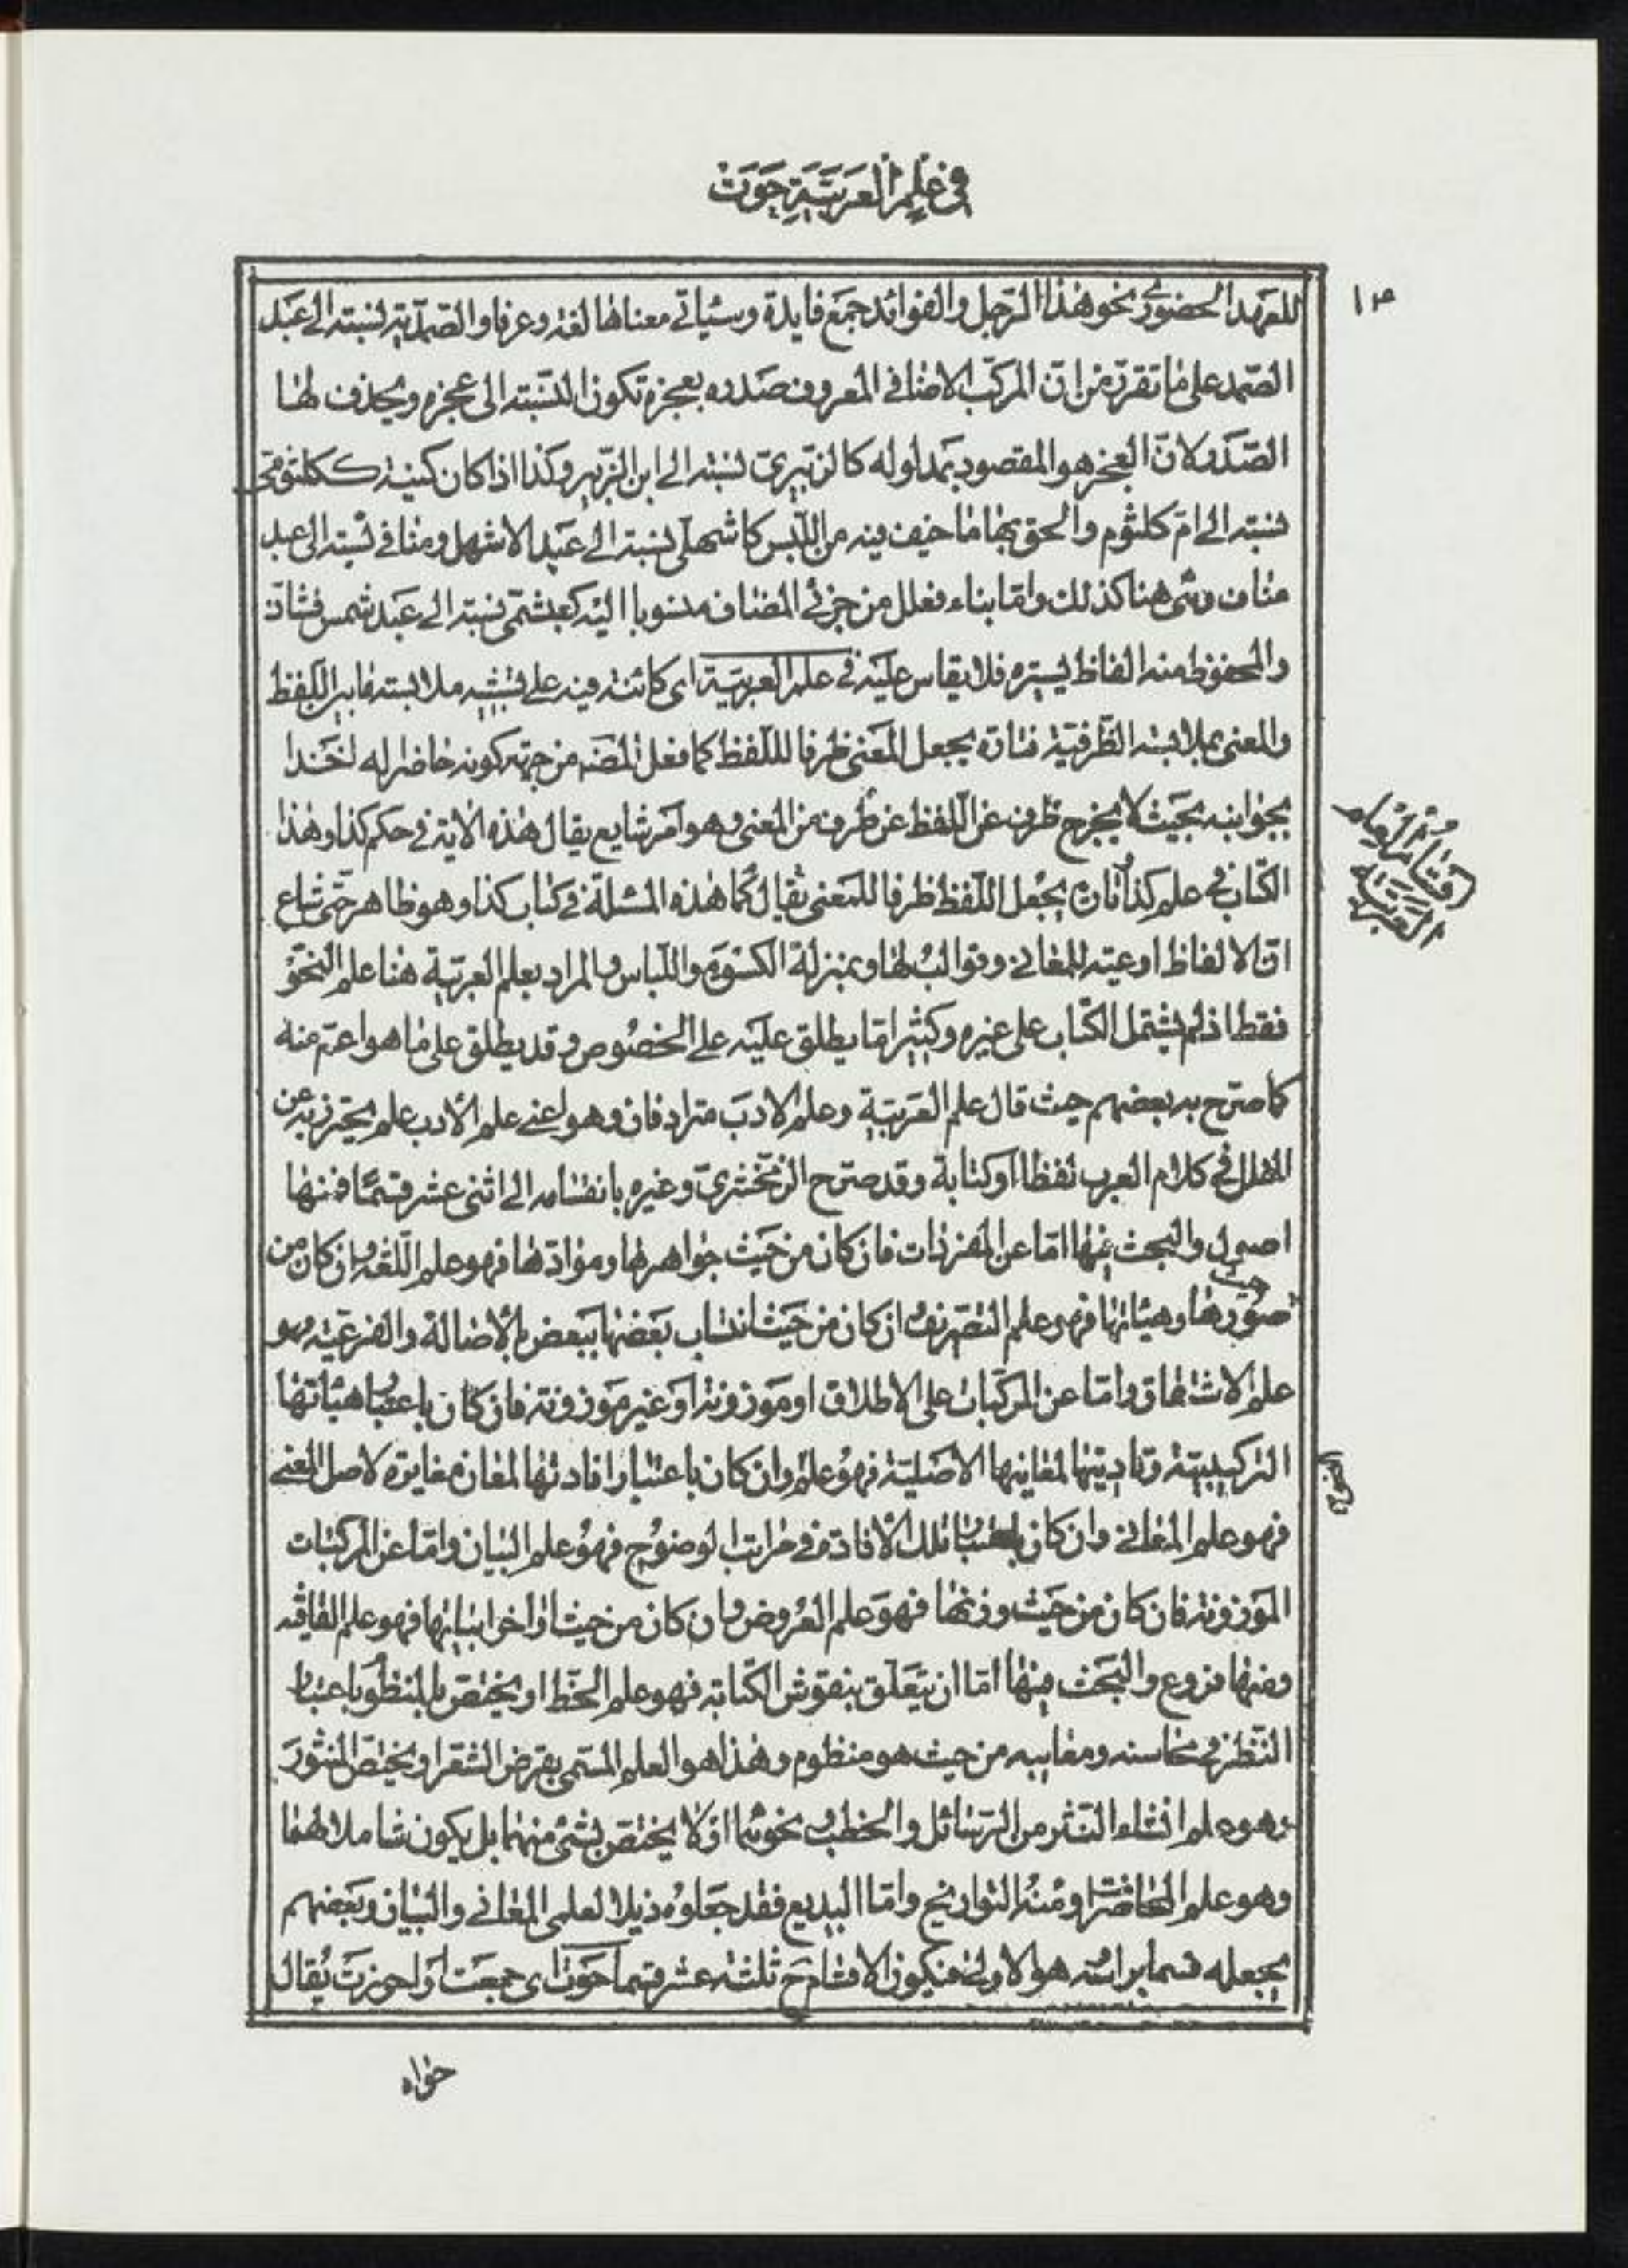 في علم العربية حوت
١٣
للعهد الحضوري نحو هذا الرجل والفوائد جمع فايدة وسيأتي معناها لغة وعرفا والصمدية نسبة الى عبد
الصمد على ما تقرر من ان المركب الاضافي المعروف صدره بعجزه تكون النسبة الى عجزه ويحذف لها
الصدر لان العجز هو المقصود بمدلوله كالزبيري نسبة الى ابن الزبير وكذا اذا كان كنية ككلثومي
نسبة الى ام كلثوم والحق بها ما خيف فيه من اللبس كاشهلي نسبة الى عبد الاشهل ومنافي نسبة الى عبد
مناف وهي هنا كذلك واما بناء فعلل من جزئي المضاف منسوبا اليه كعبشمي نسبة الى عبد شمس فشاذ
والمحفوظ منه الفاظ يسيره فلا يقاس عليه في علم العربية اى كائنة فيه على تشبيه ملابسة ما بين اللفظ
والمعنى بملابسة الظرفية فتارة يجعل المعنى ظرفا لللفظ كما فعل المصنف من جهة كونه حاضرا له اخذا
بجوانبه بحيث لا يخرج طرف عن اللفظ عن طرف من المعنى وهو امر شايع يقال هذه الاية في حكم كذا وهذا
الكتاب في علم كذا وتارة يجعل اللفظ ظرفا للمعنى يقال كما هذه المسئلة في كتاب كذا وهو ظاهر حتى شاع
ان الالفاظ اوعية للمعاني وقوالب لها وبمنزلة الكسوة واللباس والمراد بعلم العربية هنا علم النحو
فقط اذ لم يشتمل الكتاب على غيره وكثيرا ما يطلق عليه على الخصوص وقد يطلق على ما هو اعم منه
كما صرح به بعضهم حيث قال علم العربية وعلم الادب مترادفان وهو اعني علم الأدب علم يحترز به عن
الخلل في كلام العرب لفظا او كتابة وقد صرح الزمخشري وغيره بانقسامه الى اثنى عشر قسما فمنها
اصول والبحث فيها اما عن المفردات فان كان من حيث جواهرها وموادها فهو علم اللغة وان كان من
حيث
صورها وهيئاتها فهو علم التصريف وان كان من حيث انتساب بعضها ببعض بالأصالة والفرعية فهو
علم الاشتقاق واما عن المركبات على الاطلاق او موزونة او غير موزونة فان كان باعتبار هيئاتها
التركيبية وتاديتها لمعانيها الاصلية فهو علم وان كان باعتبار افادتها لمعان مغايرة لاصل المعنى
النحو
فهو علم المعاني وان كان باعتبار تلك الافادة في مراتب الوضوح فهو علم البيان واما عن المركبات
الموزونة فان كان من حيث وزنها فهو علم العروض وان كان من حيث اواخر ابياتها فهو علم القافية
ومنها فروع والبحث فيها اما ان يتعلق بنقوش الكتابة فهو علم الخط او يختص بالمنظوم باعتبار
النظر في محاسنه ومعايبه من حيث هو منظوم وهذا هو العلم المسمى بقرض الشعر او يختص المنثور
وهو علم انشاء النثر من الرسائل والخطب ونحوهما او لا يختص بشئ منهما بل يكون شاملا لهما
وهو علم المحاضرات ومنه التواريخ واما البديع فقد جعلوه ذيلا لعلمي المعاني والبيان وبعضهم
يجعله قسما براسه هو الاولى فيكون الاقسام ح ثلثة عشر قسما حوت اى جمعت او احرزت يقال
اقسام العلوم
العربية
حواه